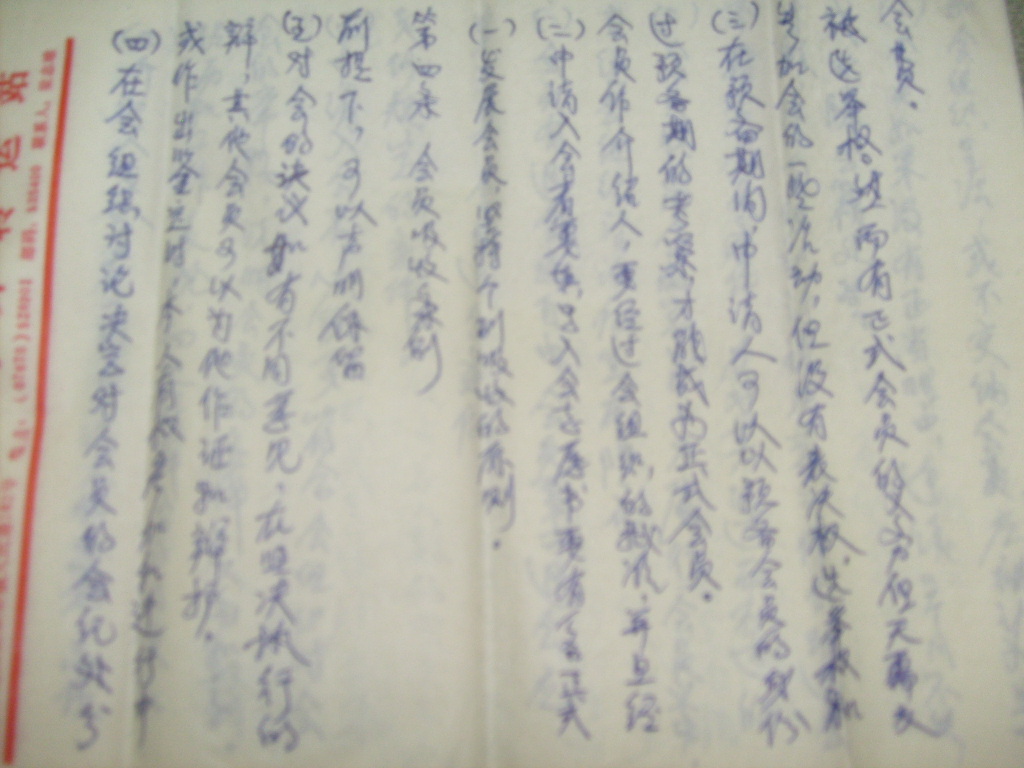 转运站
(四)在会组织讨论决定对会员的会纪处分
或作出鉴定时,本人有权参加和进行申
辩,其他会员可以为他作证和辩护。
(五)对会的决议如有不同意见,在坚决执行的
前提下,可以声明保留
第四条 会员吸收原则
(一)发展会员,坚持个别吸收的原则。
(二)申请入会者要填写入会志愿书要有 正式
会员作介绍人,要经过会组织的批准,并且经
过预备期的考察,才能成为正式会员。
(三)在预备期间,申请人可以以预备会员的身份
参加会的一些活动,但没有表决权、选举权和
被选举权。 而有正式会员的义务但无需交
会费。